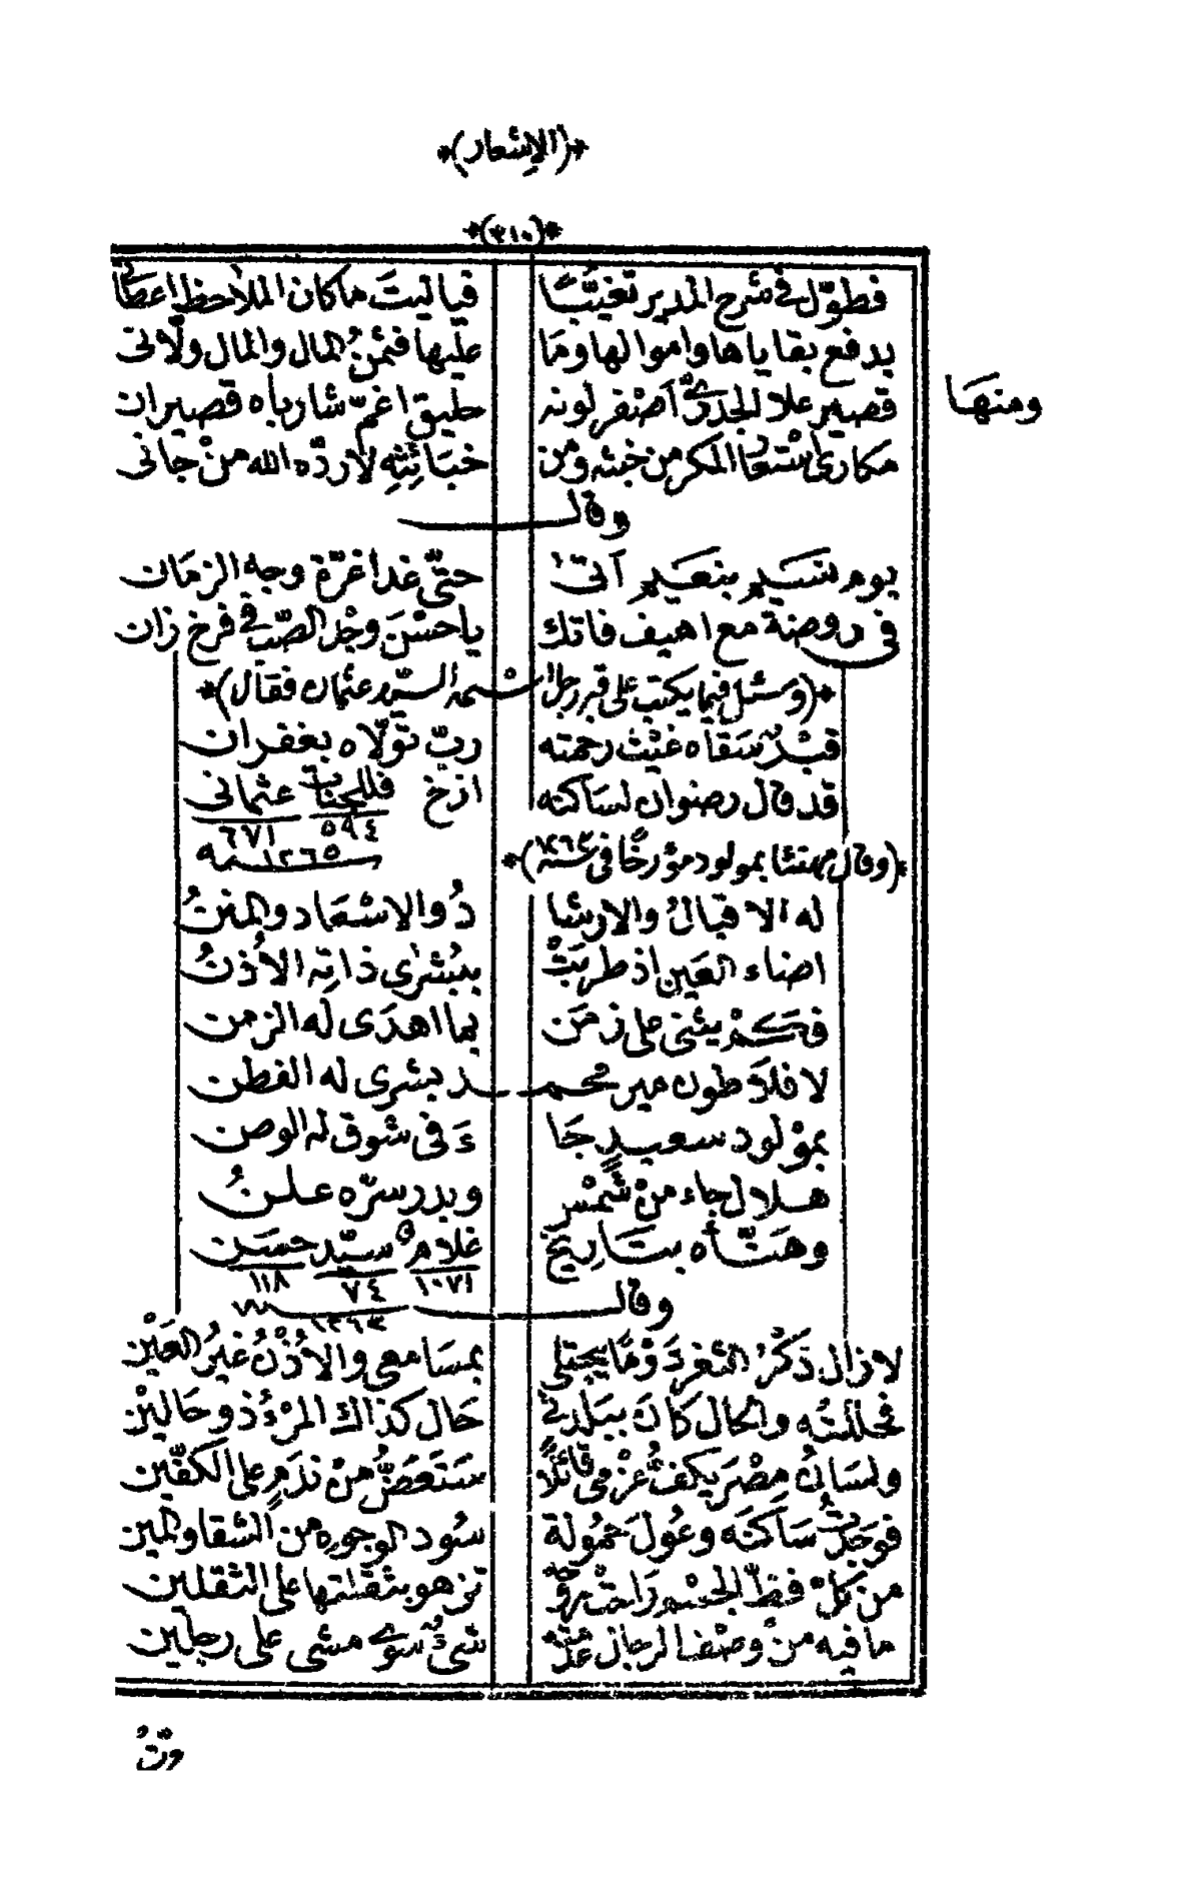 *(الاشعار)*
*(٣١٠)*
فطوّل في شرح المدير تغيّبًا فياليت ماكان الملاحظ اعطانى
بدفع بقاياها واموالها وما عليها فثمنُ المال والمال ولّانى
ومنها
قصير علا الجدرىّ اصفر لونه حليق اغمّ شارباه قصيران
مكارى استعار المكر من خبثه ومن خبائثه لاردّه الله من جانى
وقال
يوم نسيم بنعيم اتى حتّى غدا غرّة وجه الزمان
فى روضة مع اهيف فاتك ياحسن وجد الصّب فى فرخ زان
*(وسئل فيما يكتب على قبر رجل اسمه السيّد عثمان فقال)*
قبرٌ سقاه غيث رحمته ربّ تولّاه بغفران
قد قال رضوان لساكنه ارّخ فللجنات عثمانى
٥٩٤ ٦٧١
١٢٦٥ سنه
*(وقال مهنئا بمولود مؤرخًا فى سنة ١٢٦٣)*
له الاقبالُ والارشا دُ والاشعاد والمننُ
اضاء العين اذ طربتْ ببشرى ذاته الأذنُ
فكمْ يثنى على زمن بما اهدى له الزمن
لافلاطون مير محمد بشرى له الفطن
بموْلود سعيدٍ جَا ءَ فى شوق له الوطن
هلال جاء منْ شمْس وبدر سرّه علنُ
وهنّأه بتاريخ غلام سيّد حسن
١٠٧١ ٧٤ ١١٨
١٢٦٣ سنه
وقال
لازال ذكْرُ الثغر دَوْمًا يجتلى بمسامعى والأذْنُ غيرُ العَيْن
فحللتُه والحال كان ببلدتى حال كذاك المرْءُ ذو حَاليْن
ولسانُ مِصْرَ يكفُّ عزْمى قائلًا ستعضُّ منْ ندمٍ على الكفّين
فوجدتُ ساكنَه وعُولَ حمُولة سُود الوجوه من الشقا والمين
من كلّ فظّ الجسْم راحتْ تزهو بثقلتها على الثقلين
مافيه منْ وصْف الرجال شىءٌ سوى مشى على رجلين